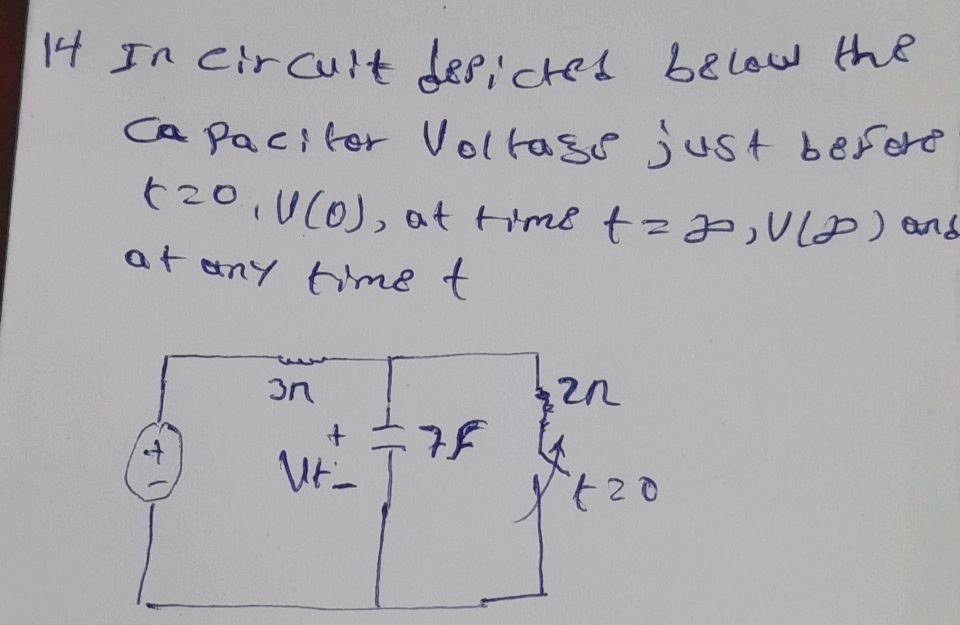 14 In circuit depicted below the
Capacitor Voltage just before
t=0, V(0), at time t=∞, V(∞) and
at any time t
3Ω
2Ω
+
7F
+
Vt
-
-
t=0